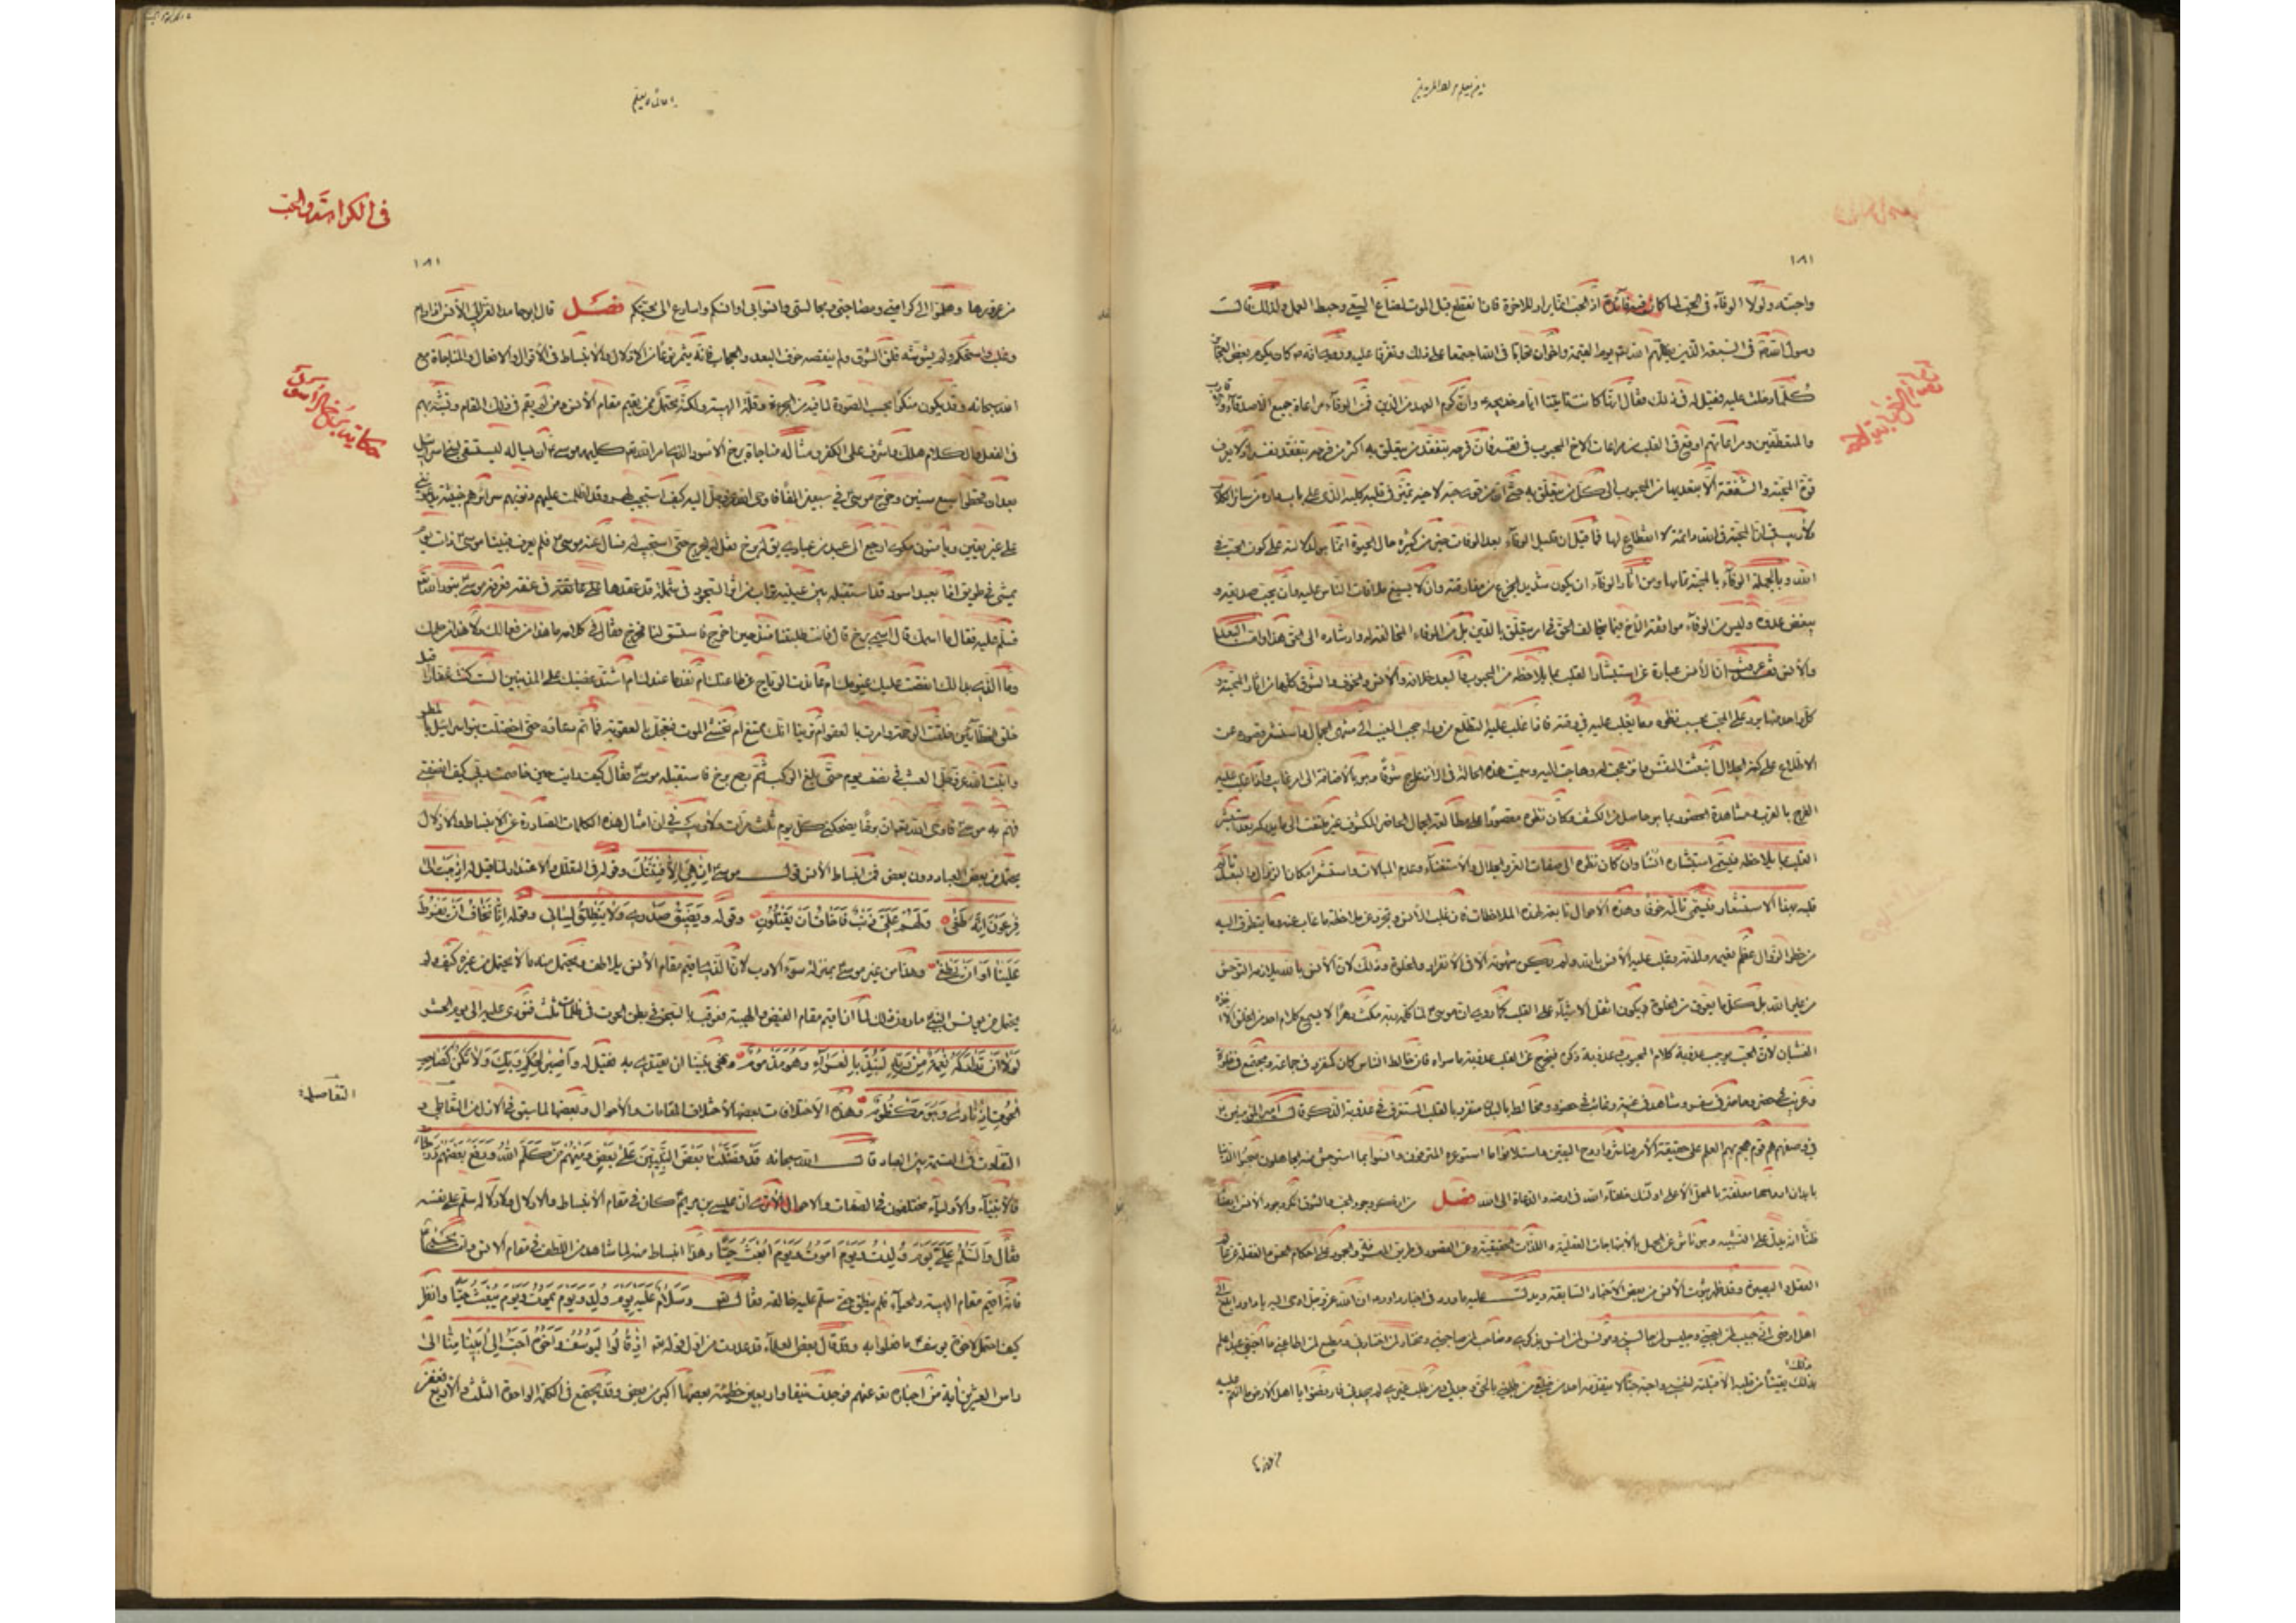 واجبته ولولا الوفآء فى الحب لما كان فيه فآئدة اذ الحب انما يراد للاخرة فان انقطع قبل الموت لضاع السعى وحبط العمل ولذلك قالت
رسول الله فى السبعة الذين يظلهم الله يوم القيمة واخوان تحابا فى الله اجتمعا على ذلك وتفرقا عليه وروى انه كان يكرم بعض العجائز
كلما دخلت عليه فقيل له فى ذلك فقال انها كانت تاتينا ايام خديجة وان كرم العهد من الدين فمن الوفآء مراعاة جميع الاصدقآء
ومراعاتهم اوقع فى القلب من مراعات الاخ المحبوب فى نفسه فان فرحه بتفقد من يتعلق به اكثر من فرحه بتفقد نفسه اذ لا يعرف
قوة المحبة والشفقة الا بتعديهما من المحبوب الى كل من يتعلق به حتى ان من قوى حبه لاخيه تميز فى قلبه كلبه الذى على باب داره من سائر الكلاب
ولا ريب ان المحبة فى الله دائمة لا انقطاع لها فما قيل ان قليل الوفآء بعد الوفات خير من كثيره حال الحيوة انما هو لدلالته على كون الحب فى
الله وبالجملة الوفآء بالمحبة تمامها ومن اثار الوفآء ان يكون شديد الجزع من مفارقته وان لا يسمع بلاغات الناس عليه وان يحب صديقه و
يبغض عدوه وليس من الوفآء موافقة الاخ فيما يخالف الحق فى امر يتعلق بالدين بل من الوفاء المخالفة له وارشاده الى الحق
ان الانس عبارة عن استبشار القلب بما يلاحظه من المحبوب والبعد خلافه والانس والخوف والشوق كلها من اثار المحبة و
كل واحد منها يرد على المحب بحسب نظره وما يغلب عليه فى وقته فاذا غلب عليه التطلع من وراء حجب الغيب الى منتهى الجمال واستشعر قصوره عن
الاطلاع على كنه الجلال انبعث النفس وانزعجت له وهاجت اليه وسميت هذه الحالة فى الانزعاج شوقا وهو بالاضافة الى امر غائب واذا غلب عليه
الفرح بالقرب ومشاهدة الحضور بما هو حاصل من الكشف وكان نظره مقصورا على مطالعة الجمال الحاضر المكشوف غير ملتفت الى ما لم يدركه بعد استبشر
القلب بما يلاحظه فيسمى استبشاره انسا وان كان نظره الى صفات العز والجلال والاستغنآء وعدم المبالات واستشعر امكان الزوال والبعد تألم
قلبه بهذا الاستشعار فيسمى تألمه خوفا وهذه الاحوال تابعة لهذه الملاحظات فان غلب الانس وتجرد عن ملاحظة ما غاب عنه وما يتطرق اليه
من خطر الزوال عظم نعيمه ولذته وغلب عليه الانس بالله ولم يكن شهوته الا فى الانفراد والخلوة وذلك لان الانس بالله يلازمه التوحش
من غير الله بل كل ما يعوق من الخلوة فيكون اثقل الاشيآء على القلب كما روى ان موسى لما كلمه ربه مكث دهرا لا يسمع كلام احد من الخلق الا اخذه
الغشيان لان الحب يوجب عذوبة كلام المحبوب وعذوبة ذكره فيخرج عن القلب عذوبة ما سواه فان خالط الناس كان كمنفرد فى جماعة ومجتمع فى خلوة
وغريب فى حضر وحاضر فى سفر وشاهد فى غيبة وغائب فى حضور ومخالط بالبدن متفرد بالقلب المستغرق فى عذوبة الذكر قال امير المؤمنين
فى وصفهم هم قوم هجم بهم العلم على حقيقة الامر فباشروا روح اليقين واستلانوا ما استوعره المترفون وانسوا بما استوحش منه الجاهلون صحبوا الدنيا
بابدان ارواحها معلقة بالمحل الاعلى اولئك خلفآء الله فى ارضه والدعاة الى الله فصل من انكر وجود الحب والشوق انكر وجود الانس ايضا
ظنا انه يدل على التشبيه وهو ناش عن الجهل بالابتهاجات العقلية واللذات الحقيقية وعن القصور
العقل والبصيرة وقد ظهر ثبوت الانس من بعض الاخبار السابقة ويدل عليه ما ورد فى اخبار داود ان الله عز وجل اوحى اليه يا داود ابلغ
اهل ارضى انى حبيب لمن احبنى وجليس لمن جالسنى ومونس لمن انس بذكرى وصاحب لمن صاحبنى ومختار لمن اختارنى ومطيع لمن اطاعنى ما احبنى عبد اعلم
ذلك يقينا من قلبه الا قبلته لنفسى واحببته حبا لا يتقدمه احد من خلقى من طلبنى بالحق وجدنى ومن طلب غيرى لم يجدنى فارفضوا يا اهل الارض ما انتم عليه
فى الكراهة والحب
١٨١
من غرورها وهلموا الى كرامتى ومصاحبتى ومجالستى وانسوا بى اوانسكم واسارع الى محبتكم فصل قال ابو حامد الغزالى الانس اذا دام
وغلب واستحكم ولم يشوشه قلق الشوق ولم ينغصه خوف البعد والحجاب فانه يثمر نوعا من الادلال والانبساط فى الاقوال والافعال والمناجاة مع
الله سبحانه وقد يكون منكرا بحسب الصورة لما فيه من الجرءة وقلة الهيبة ولكنه محتمل ممن يقيم مقام الانس ومن لم يقم فى ذلك المقام وتشبه بهم
فى الفعل والكلام هلك واشرف على الكفر ومثاله مناجاة برخ الاسود الذى امر الله كليمه موسى ان يساله ليستسقى لبنى اسرائيل
بعد ان قحطوا سبع سنين وخرج موسى فى سبعين الفا فاوحى الله عز وجل اليه كيف استجيب لهم وقد اظلمت عليهم ذنوبهم سرائرهم خبيثة يدعوننى
على غير يقين ويأمنون مكرى ارجع الى عبد من عبادى يق له برخ فقل له يخرج حتى استجيب له فسال عنه موسى فلم يعرف فبينا موسى ذات يوم
يمشى فى طريق اذا بعبد اسود قد استقبله بين عينيه تراب من اثر السجود فى شملة قد عقدها على عنقه فعرفه موسى بنور الله
فسلم عليه فقال ما اسمك قال اسمى برخ قال فانت طلبتنا منذ حين اخرج فاستسق لنا فخرج فقال فى كلامه ما هذا من فعالك ولا هذا من حلمك
وما الذى بدا لك انقصت عليك عيونك ام عاندت الرياح عن طاعتك ام نفد ما عندك ام اشتد غضبك على المذنبين الست كنت غفارا قبل
خلق الخطائين خلقت الرحمة وامرت بالعفو ام ترينا انك ممتنع ام تخشى الفوت فتعجل بالعقوبة فما تم دعاؤه حتى اخضلت بنو اسرائيل بالمطر
وانبت الله عز وجل العشب فى نصف يوم حتى بلغ الركب ثم رجع برخ فاستقبله موسى فقال كيف رايت حين خاصمت ربى كيف انصفنى
فهم به موسى فاوحى الله تعه ان برخا يضحكنى كل يوم ثلث مرات ولا ريب فى ان امثال هذه الكلمات الصادرة عن الانبساط والادلال
يحتمل من بعض العباد دون بعض فمن انبساط الانس قول موسى ان هى الا فتنتك وقوله فى التعلل والاعتذار لما قيل له اذهب الى
فرعون انه طغى ولهم على ذنب فاخاف ان يقتلون وقوله ويضيق صدرى ولا ينطلق لسانى وقوله اننا نخاف ان يفرط
علينا او ان يطغى وهذا من غير موسى بمنزلة سوء الادب لان الذى اقيم مقام الانس يلاطف ويحتمل منه ما لا يحتمل من غيره كيف ولم
يحتمل من يونس النبى ما دون ذلك لما اقيم مقام القبض والهيبة فعوقب بالسجن فى بطن الحوت فى ظلمات ثلث فنودى عليه الى يوم الحشر
لولا ان تداركه نعمة من ربه لنبذ بالعرآء وهو مذموم ونهى نبينا ان يقتدى به فقيل له واصبر لحكم ربك ولا تكن كصاحب
الحوت اذ نادى وهو مكظوم وهذه الاختلافات بعضها لاختلاف المقامات والاحوال وبعضها لما سبق فى الازل من التفاضل و
التفاوت فى القسمة بين العباد قال الله سبحانه قد فضلنا بعض النبيين على بعض ومنهم من كلم الله ورفع بعضهم درجات
فالانبيآء والاوليآء مختلفون فى الصفات والاحوال الا ترى ان عيسى بن مريم كان فى مقام الانبساط والادلال ولادلاله سلم على نفسه
فقال والسلم على يوم ولدت ويوم اموت ويوم ابعث حيا وهذا انبساط منه لما شاهد من اللطف فى مقام الانس
فانه اقيم مقام الهيبة والحيآء فلم ينطق حتى سلم عليه خالقه فقال وسلام عليه يوم ولد ويوم يموت ويوم يبعث حيا وانظر
كيف احتمل لاخوة يوسف ما فعلوا به وقد قال بعض العلمآء قد عددت من اول قوله تع اذ قالوا ليوسف واخوه احب الى ابينا منا الى
راس العشرين اية من اخباره تعه عنهم فوجدت نيفا واربعين خطيئة بعضها اكبر من بعض وقد يجتمع فى الكلمة الواحدة الثلث والاربع فغفر
حكاية برخ الاسود
التفاصيل